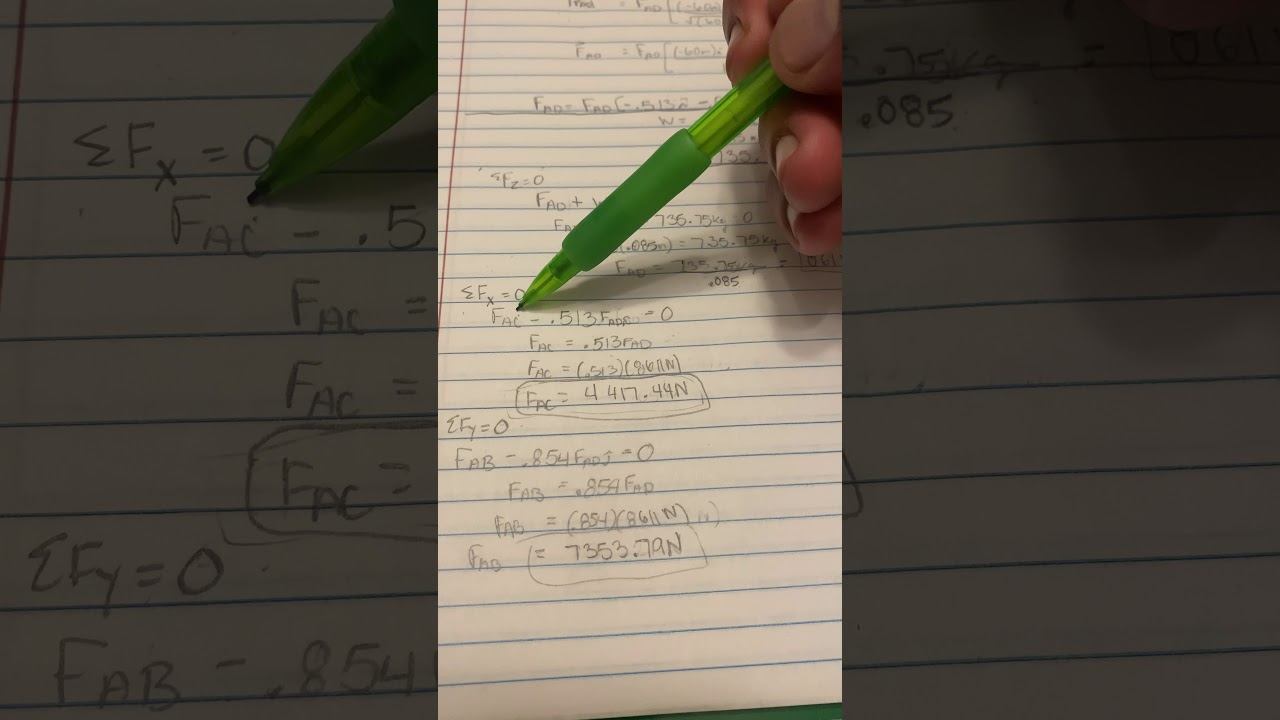 = F_AD [(-60m)
F_AD = F_AD [(-60m)i
F_AD = F_AD [-.513i -
W =
735.
ΣF_z=0
F_AD +
735.75kg = 0
(.085m) = 735.75kg
F_AD = 735.75kg =
.085
ΣF_x = 0
F_AC - .513F_AD = 0
F_AC = .513F_AD
F_AC = (.513)(8611N)
F_AC = 4 417.44N
ΣF_y = 0
F_AB - .854F_ADj = 0
F_AB = .854F_AD
F_AB = (.854)(8611N)
F_AB = 7353.79N